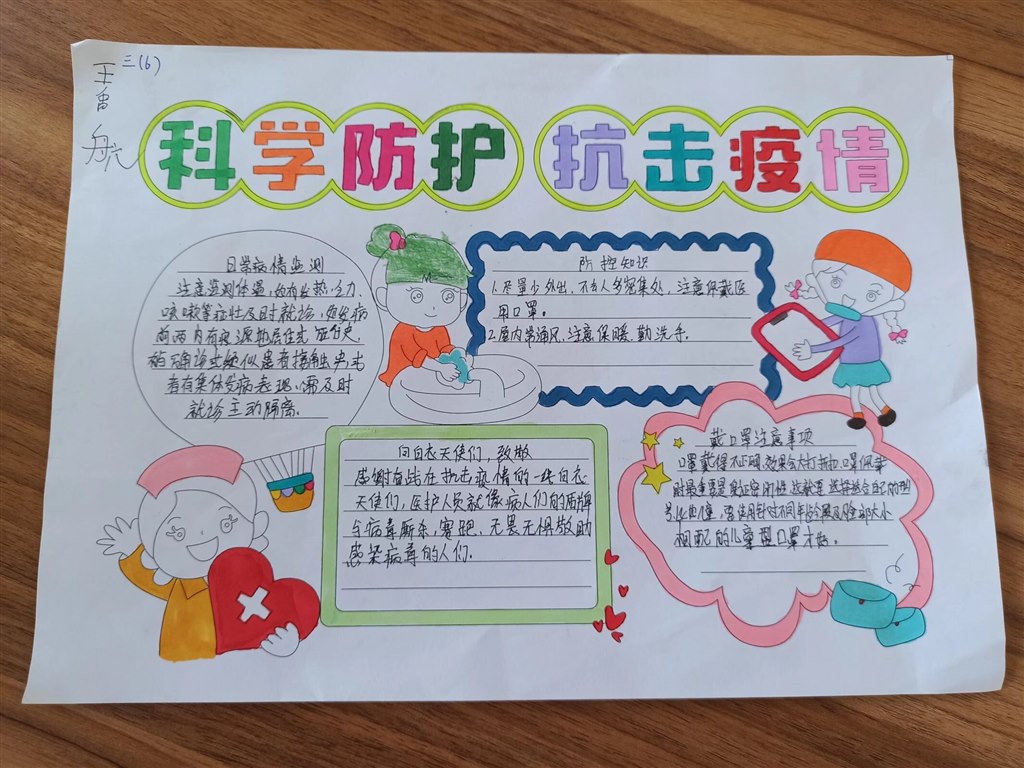 三(6)
王鲁
航
科学防护 抗击疫情
日常病情监测
注意监测体温,如有发热、乏力、
咳嗽等症状及时就诊,如发病
前两内有疫源地居住或
确诊或疑似患者接触史,或
者有集体发病表现,需及时
就诊主动隔离。
防控知识
1.尽量少外出,不去人多密集处,注意佩戴医
用口罩。
2.屋内常通风、注意保暖、勤洗手。
向白衣天使们,致敬
感谢奋战在抗击疫情的一线白衣
天使们,医护人员就像病人们的盾牌
与病毒厮杀、赛跑、无畏无惧救助
感染病毒的人们.
戴口罩注意事项
口罩戴得不正确,效果会大打折扣,口罩佩戴
时最重要是保证密闭性,这就要选择适合自己的型
号,儿童,要使用针对不同年龄段及脸部大小
相配的儿童型口罩才好。